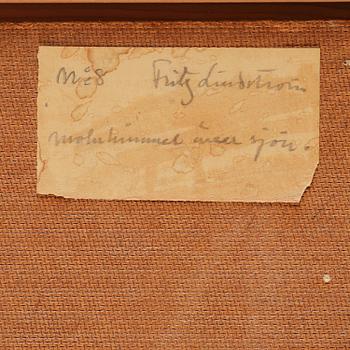 No 8 Fritz Lindström
Molnhimmel över sjön.